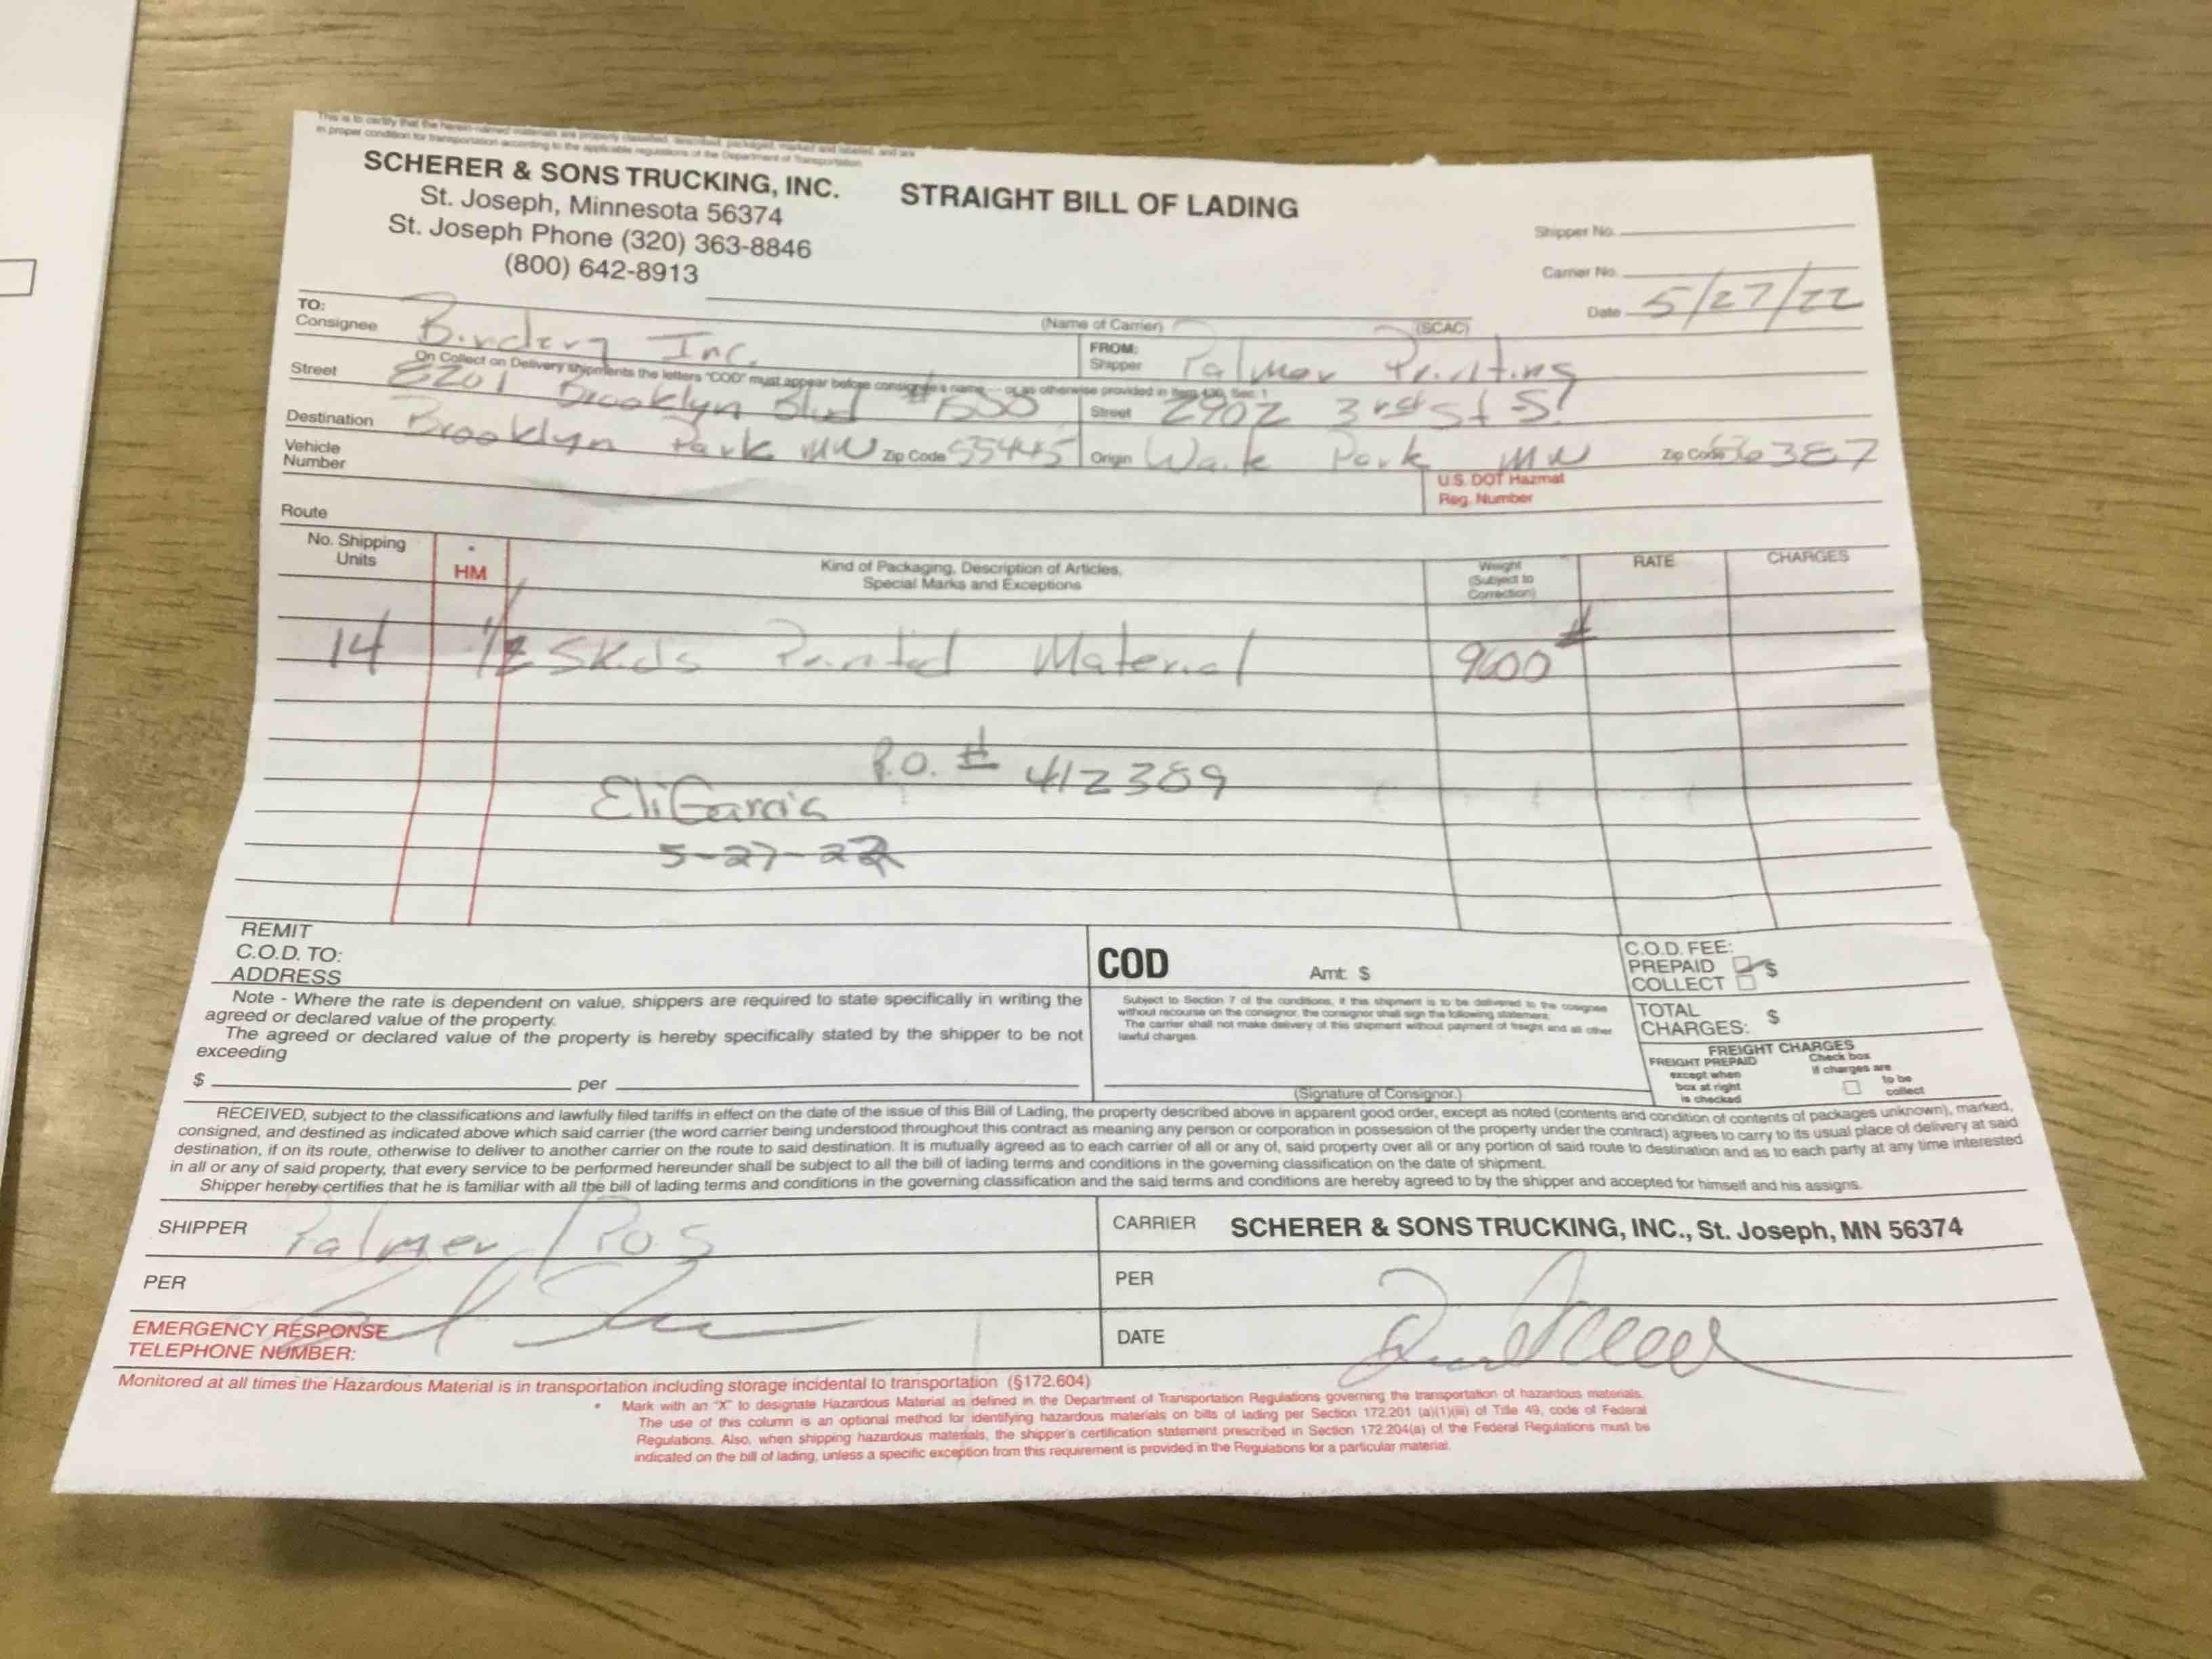 This is to certify that the herein-named materials are properly classified, described, packaged, marked and labeled, and are
in proper condition for transportation according to the applicable regulations of the Department of Transportation
SCHERER & SONS TRUCKING, INC.
St. Joseph, Minnesota 56374
St. Joseph Phone (320) 363-8846
(800) 642-8913
STRAIGHT BILL OF LADING
Shipper No.
Carrier No.
Date 5/27/22
(Name of Carrier) (SCAC)
TO:
Consignee Bindery Inc.
On Collect on Delivery shipments the letters "COD" must appear before consignee's name - or as otherwise provided in Item 430, Sec. 1
Street 8201 Brooklyn Blvd
Destination Brooklyn Park MN Zip Code 55445
FROM:
Shipper Palmer Printing
Street 2902 3rd St S.
Origin Waite Park MN Zip Code 56387
Vehicle
Number
U.S. DOT Hazmat
Reg. Number
Route
No. Shipping
Units
*
HM
Kind of Packaging, Description of Articles,
Special Marks and Exceptions
Weight
(Subject to
Correction)
RATE
CHARGES
14 1/2 Skids Printed Material 9600 #
P.O. # 412389
Eli Garcia
5-27-22
REMIT
C.O.D. TO:
ADDRESS
COD Amt $
C.O.D. FEE:
PREPAID $
COLLECT
Note - Where the rate is dependent on value, shippers are required to state specifically in writing the
agreed or declared value of the property.
The agreed or declared value of the property is hereby specifically stated by the shipper to be not
exceeding
$ per
Subject to Section 7 of the conditions, if this shipment is to be delivered to the cosignee
without recourse on the consignor, the consignor shall sign the following statement:
The carrier shall not make delivery of this shipment without payment of freight and all other
lawful charges.
(Signature of Consignor.)
TOTAL
CHARGES: $
FREIGHT CHARGES
FREIGHT PREPAID
except when
box at right
is checked
Check box
if charges are
to be
collect
RECEIVED, subject to the classifications and lawfully filed tariffs in effect on the date of the issue of this Bill of Lading, the property described above in apparent good order, except as noted (contents and condition of contents of packages unknown), marked,
consigned, and destined as indicated above which said carrier (the word carrier being understood throughout this contract as meaning any person or corporation in possession of the property under the contract) agrees to carry to its usual place of delivery at said
destination, if on its route, otherwise to deliver to another carrier on the route to said destination. It is mutually agreed as to each carrier of all or any of, said property over all or any portion of said route to destination and as to each party at any time interested
in all or any of said property, that every service to be performed hereunder shall be subject to all the bill of lading terms and conditions in the governing classification on the date of shipment.
Shipper hereby certifies that he is familiar with all the bill of lading terms and conditions in the governing classification and the said terms and conditions are hereby agreed to by the shipper and accepted for himself and his assigns.
SHIPPER Palmer / POS
PER
EMERGENCY RESPONSE
TELEPHONE NUMBER:
CARRIER SCHERER & SONS TRUCKING, INC., St. Joseph, MN 56374
PER
DATE
Monitored at all times the Hazardous Material is in transportation including storage incidental to transportation (§172.604)
* Mark with an "X" to designate Hazardous Material as defined in the Department of Transportation Regulations governing the transportation of hazardous materials.
The use of this column is an optional method for identifying hazardous materials on bills of lading per Section 172.201 (a)(1)(iii) of Title 49, code of Federal
Regulations. Also, when shipping hazardous materials, the shipper's certification statement prescribed in Section 172.204(a) of the Federal Regulations must be
indicated on the bill of lading, unless a specific exception from this requirement is provided in the Regulations for a particular material.